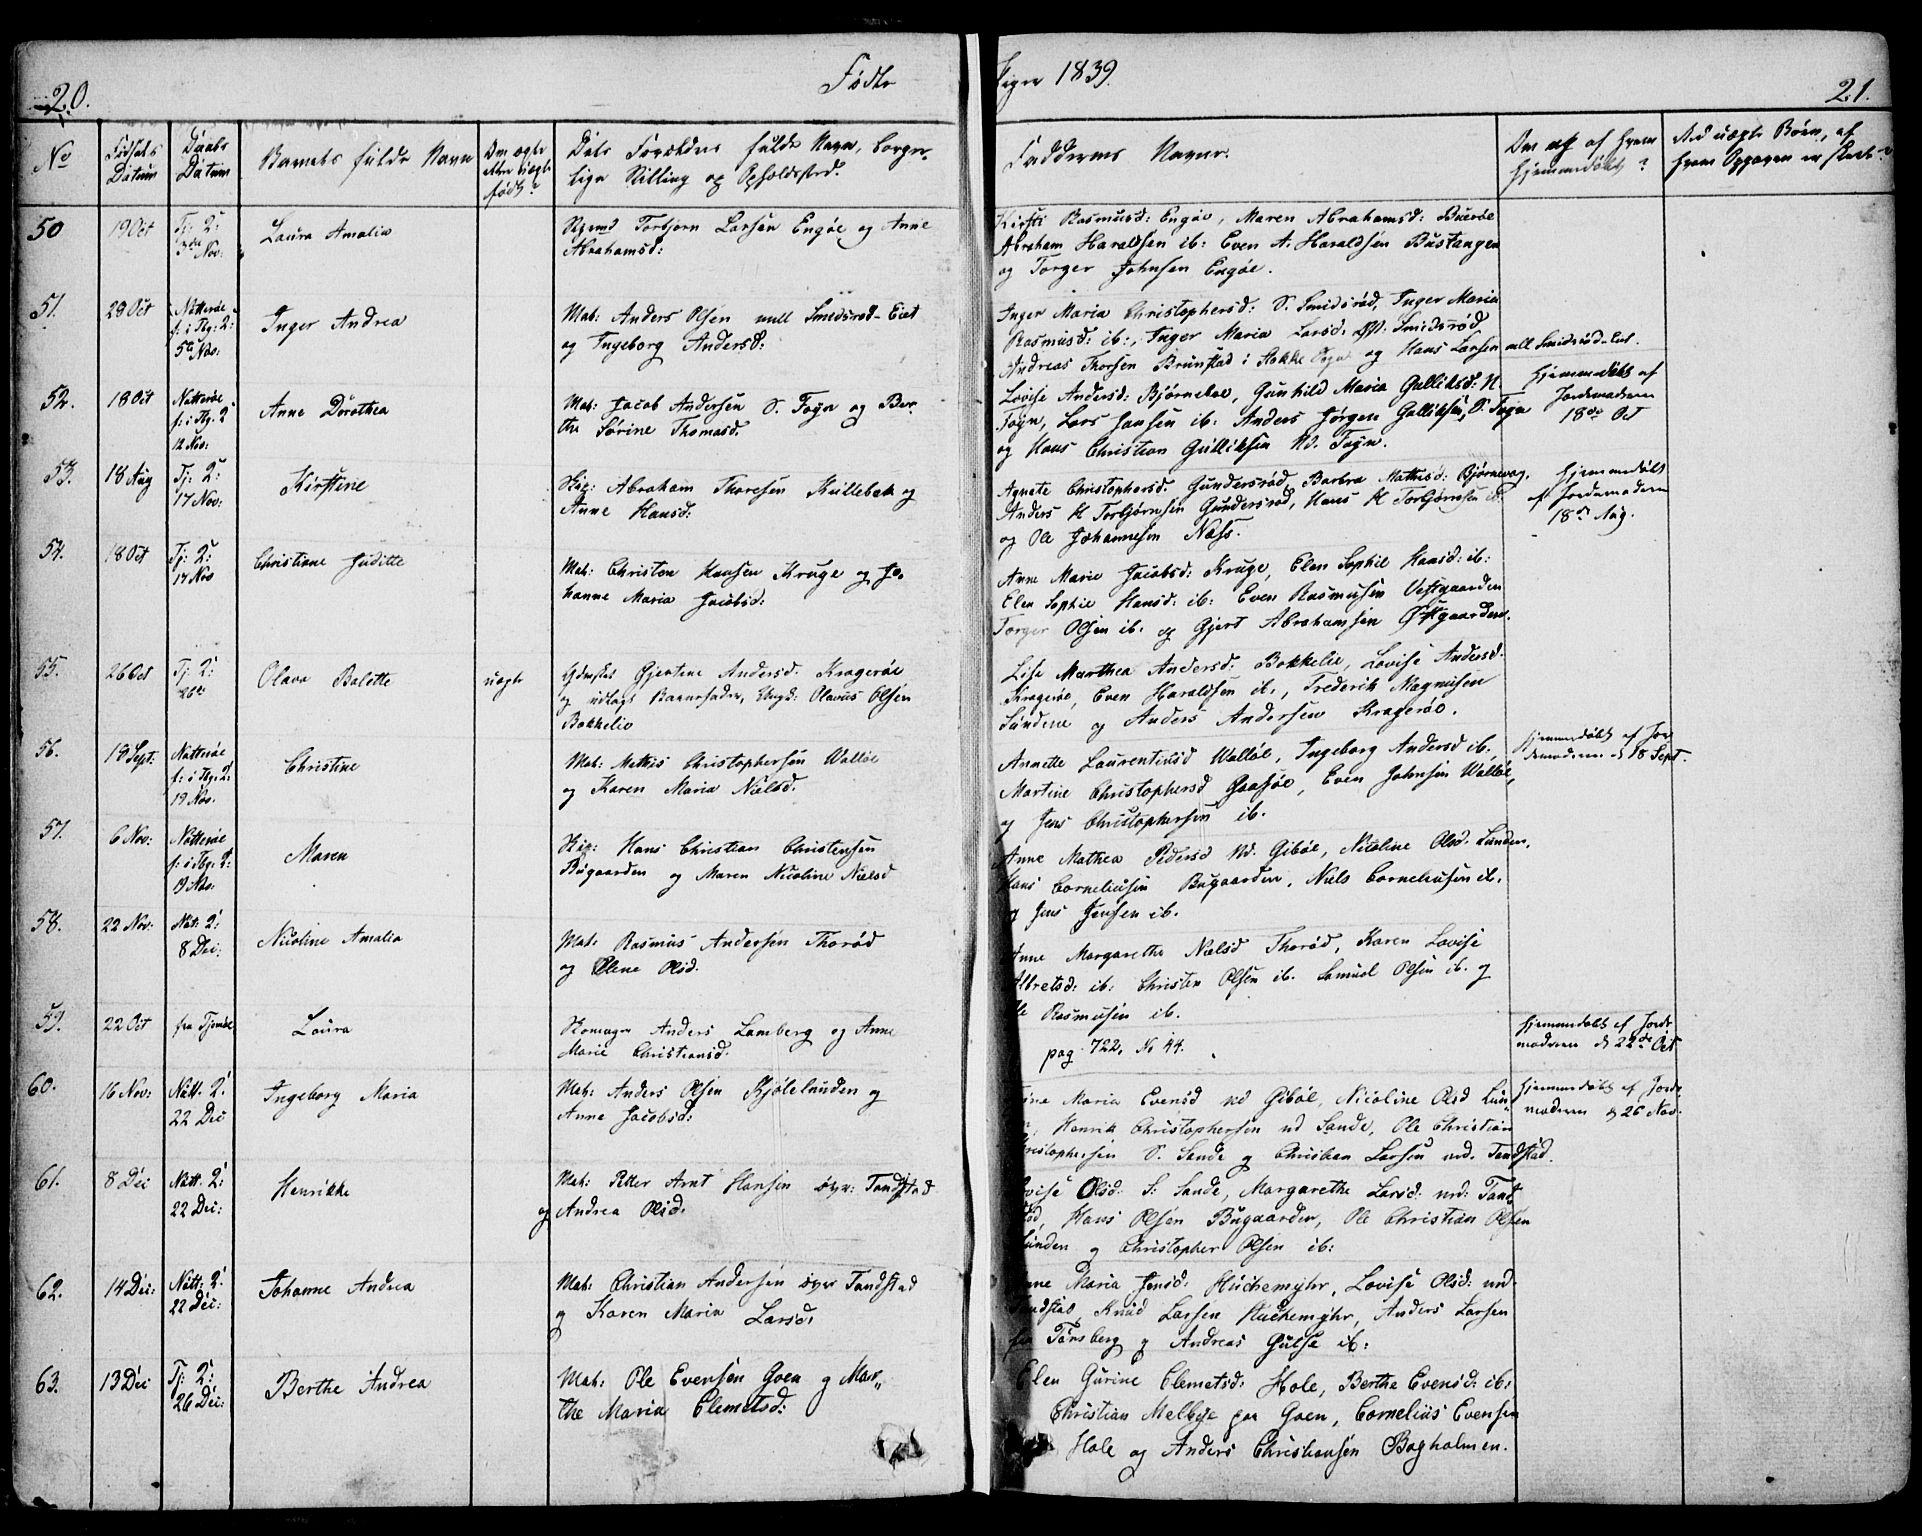 20.
Fødte
Piger 1839.
21.
No
Fødsels Datum
Daabs Datum
Barnets fulde Navn
Om ægte eller uægte født?
Dets Forældres fulde Navn, borger-
lige Stilling og Opholdssted.
Faddernes Navne.
Om og af hvem hjemmedøbt?
Ved uægte Børn, af
hvem Opgaven er skeet?
50
19 Oct
Tj: 2:
3die Nov:
Laura Amalia
Torbjørn Larsen Engøe og Anne
Abrahamsd:
Kirsti Rasmusd: Engøe, Maren Abrahamsd: Buerøe
Abraham Haraldsen ib: Even A. Haraldsen Bustangen
og Torger Johnsen Engøe.
51.
29 Oct
Nøtterøe
f: i Tbg: 2:
5te Nov:
Inger Andrea
Mat: Anders Olsen mell Smidsrød Eiet
og Ingeborg Andersd:
Inger Maria Christophersd: S. Smidsrød, Inger Maria
Rasmusd: ib:, Inger Maria Larsd: M: Smidsrød
Andreas Thorsen Brunstad i Stokke Sogn og Hans Larsen mell Smidsrød-Eiet.
52.
18 Oct
Nøtterøe
f: i Tbg. 2
12 Nov:
Anne Dorothea
Mat: Jacob Andersen S. Foyn og Ber-
the Sørine Thomasd.
Lovise Andersd: Bjørneboe, Gunhild Maria Gulliksd: N.
Foyn, Lars Jansen ib: Anders Jørgen Gulliksen, S. Foyn
og Hans Christian Gulliksen N. Foyn.
hjemmedøbt af
Jordemoderen
18de Oct
53.
18 Aug
Tj: 2:
17 Nov:
Kirstine
Skip: Abraham Thoresen Kullebek og
Anne Hansd:
Agnete Christophersd. Gundersrød, Barbra Mathisd: Bjørnevog,
Anders H Torbjørnsen Gundersrød, Hans H Torbjørnsen ib:
og Ole Johannesen Næss.
hjemmedøbt
af Jordemoderen
18de Aug.
54.
18 Oct
Tj: 2:
17 Nov
Christiane Juditte
Mat: Christen Hansen Kruge og Jo,
hanne Maria Jacobsd:
Anne Marie Jacobsd: Kruge, Elen Sophie Hansd: ib:
Elen Sophie Hansd: ib: Even Rasmusen Vestgaarden
Torger Olsen ib. og Gjert Abrahamsen Østgaarden.
55.
26 Oct
Tj: 2:
Olava Bolette
uægte
Gjertine Andersd. Kragerøe
og udlagt Barnefader, Ungk: Olaves Olsen
Bokkelie
Lise Marthea Andersd. Bokkelie, Lovise Andersd.
Kragerøe, Even Haraldsen ib., Frederik Magnusen
Sundene og Anders Andersen Kragerøe.
56.
18 Sept:
Nøtterøe
f: i Tbg: 2:
19 Nov.
Christine
Mat: Mathis Christophersen Walløe
og Karen Maria Nielsd.
Annette Laurentiusd Walløe, Ingeborg Andersd ib:
Martine Christophersd Gaasøe, Even Johnsen Walløe,
og Jens Christophersen ib.
hjemmedøbt af Jor
demoderen d 18 Sept.
57.
6 Nov:
Nøtterøe
f: i Tbg: 2:
19 Nov.
Maren
Skip: Hans Christian Christensen
Bugaarden og Maren Nicoline Nielsd
Anne Mathea Pedersd Nd. Gibøe, Nicoline Olsd. Lunden,
Hans Corneliusen Bugaarden, Niels Corneliusen ib.
og Jens Jensen ib.
58.
22 Nov:
Nøt: 2:
8 Dec:
Nicoline Amalia
Mat: Rasmus Andersen Thorød
og Elene Olsd.
Anne Margarethe Nielsd Thorød, Karen Lovise
Albretsd: ib: Christen Olsen ib. Samuel Olsen ib. og
Ole Rasmusen ib.
59.
22 Oct
fra Tjømøe
Laura
Skomager Anders Lamberg og Anne
Marie Christiansd.
pag. 722, No 44.
hjemmedøbt af Jorde
moderen d 22de Oct
60.
16 Nov:
Nøtt. 2:
22 Dec
Ingeborg Maria
Mat: Anders Olsen Kjølelunden og
Anne Jacobsd:
Maria Evensd nd Gibøe, Nicoline Olsd Lun-
Henrik Christophersen nd Sande, Ole Christian
Christophersen S. Sande og Christian Larsen nd. Tandstad.
hjemmedøbt af Jorde
moderen d 26 Nov.
61.
8 Dec
Nøtt. 2:
22 Dec:
Henrikke
Mat: Petter Arnt Hansen øvr: Tandstad
og Andrea Olsd.
Lovise Olsd. S: Sande, Margarethe Larsd: nd: Tand
Hans Olsen Bugaarden, Ole Christian Olsen
Lunden og Christopher Olsen ib:
62.
14 Dec:
Nøtt: 2:
22 Dec:
Johanne Andrea
Mat: Christian Andersen øvr Tandstad
og Karen Maria Larsd:
Anne Maria Jensd: Huchemyhr, Lovise Olsd: nd.
Tandstad, Knud Larsen Huchemyhr, Anders Larsen
fra Tønsberg og Andreas Gulse ib:
63.
13 Dec
Tj: 2:
26 Dec:
Berthe Andrea
Mat: Ole Evensen Goen og Mar-
the Maria Clemetsd:
Elen Gurine Clemetsd: Hole, Berthe Evensd: ib:
Christian Melbye paa Goen, Cornelius Evensen
Hole og Anders Christiansen Bogholmen.